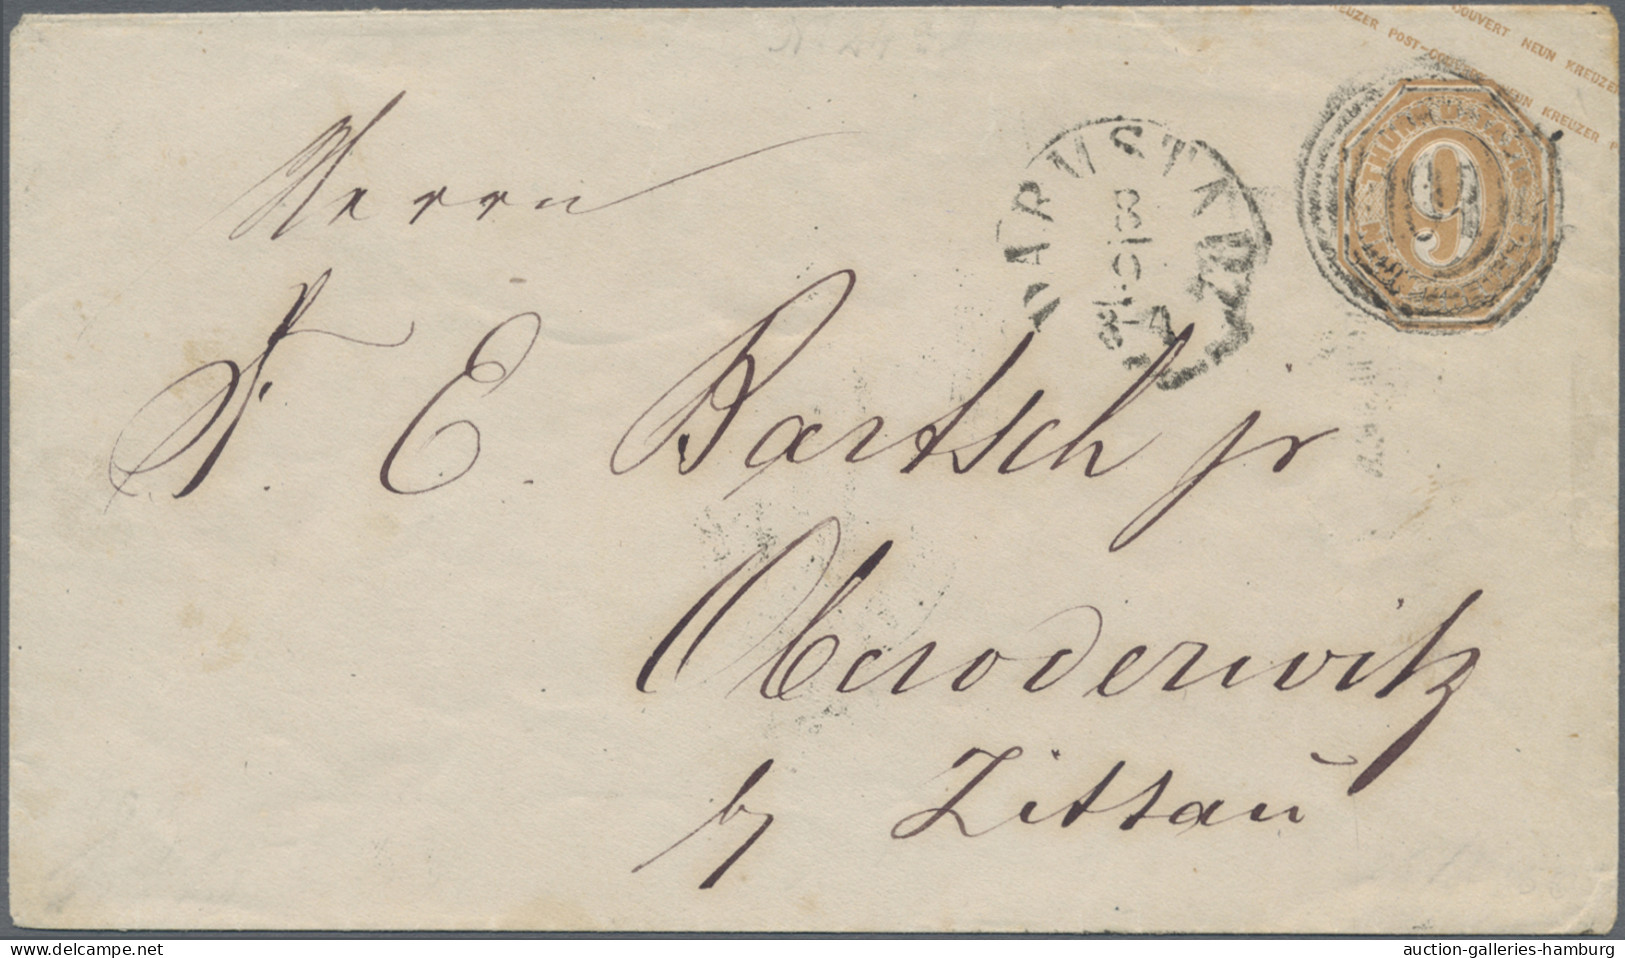 COUVERT NEUN KREUZER
KREUZER POST-COUVERT NEUN KREUZER P
9
DARMSTADT
Herrn
F. E. Bartsch jr
Oberoderwitz
by Zittau
delcampe.net
auction-galleries-hamburg